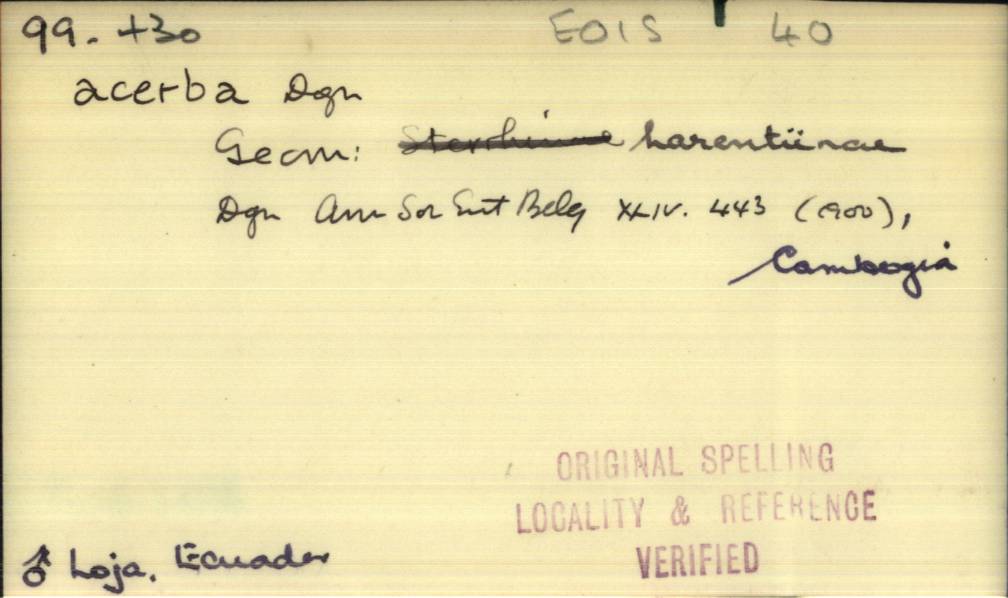 99. +30 EOIS 40
acerba Dgn
Geom: Sterrhinae Larentiinae
Dgn Ann Soc Ent Belg XLIV. 443 (1900),
Cambogia
ORIGINAL SPELLING
LOCALITY & REFERENCE
VERIFIED
♂ Loja, Ecuador